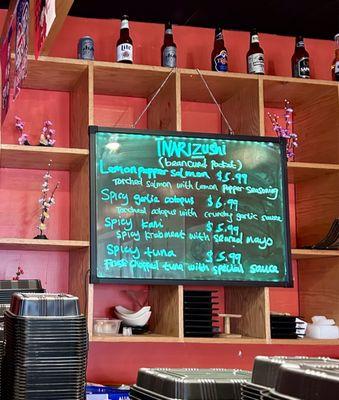 INARIZUSHI
(beancurd pocket)
Lemon pepper salmon $5.99
Torched salmon with lemon pepper seasoning
Spicy garlic octopus $6.99
Torched octopus with crunchy garlic sauce
Spicy Kani $5.99
Spicy krabment with seared mayo
Spicy tuna $5.99
Fresh chopped tuna with special sauce